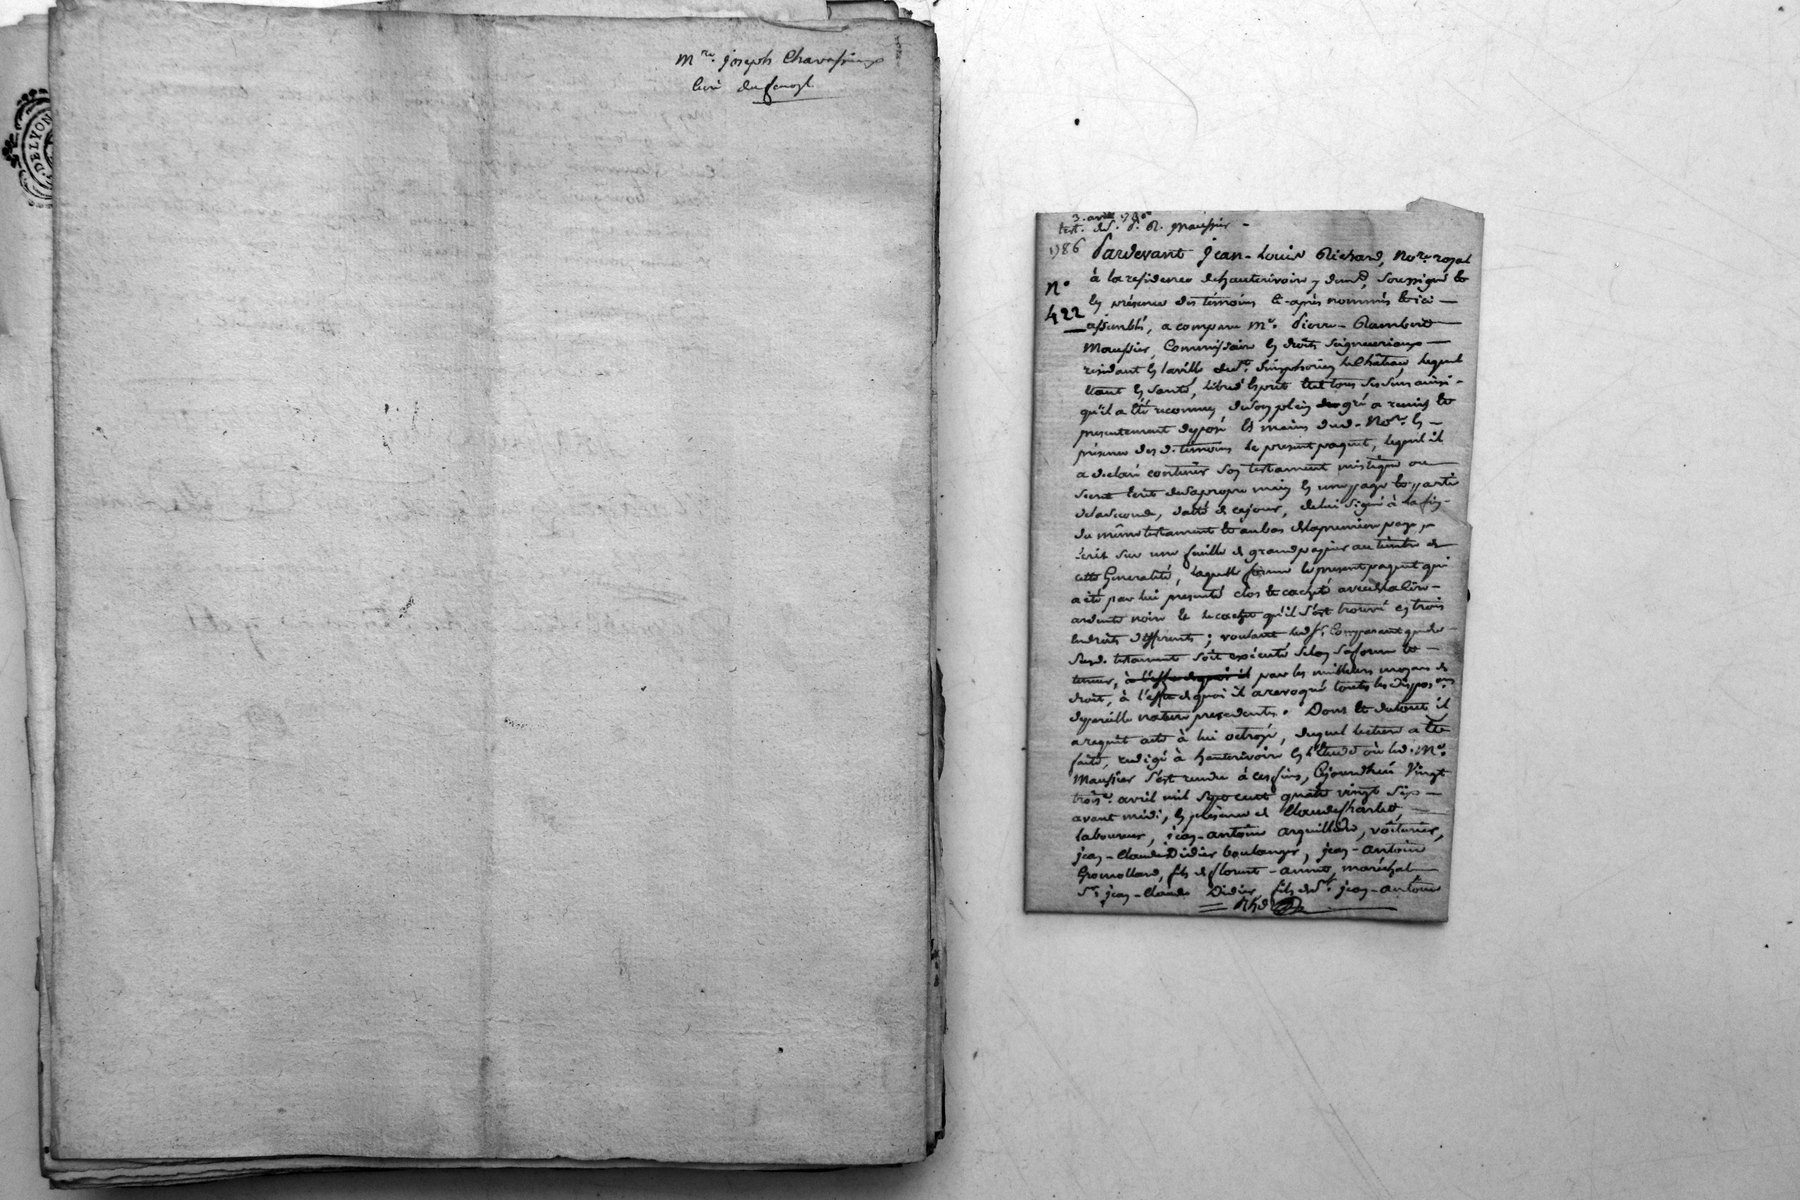 DELYON
Mre. joseph Chavassieux
curé du
3. avril 1786
test. du Sr. P. R. Maussier -
1786 Pardevant jean-Louis Richard, Nore. royal
à la residence dehauterivoire, y demt., soussigné et
N° en présence des témoins ci-après nommés et ici -
422 assemblés, a comparu Me. Pierre-Rambert
Maussier, Commissaire en droits seigneuriaux -
résidant en laville de St. Simphorien le Château, lequel
étant en santé, libre d'esprit et de tous ses sens ainsi -
qu'il a été reconnu, deson plein gré a remis et
presentement deposé ès mains dud. Nore. en -
présence des d. témoins le present paquet, lequel il
a declaré contenir son testament mistique ou
secret écrit desapropre main en une page et partie
delaseconde, datté de cejour, delui signé à la fin
du même testament et aubas delapremiere page,
écrit sur une feuille de grand papier au timbre de
cette Generalité, laquelle forme le present paquet qui
a été par lui presenté clos et cacheté avec de la cire -
ardente noire et le cachet qu'il s'est trouvé en trois
endroits differents ; voulant led. Sr. Comparant que le
susd. testament soit exécuté selon saforme et -
teneur, à l'effet de quoi il par les meilleurs moyens de
droit, à l'effet de quoi il arevoqué toutes les disposons.
depareille nature precedentes. Dont et detout il
a requit acte à lui octroyé, duquel lecture a été
faite, redigé à hauterivoire en l'étude où led. Me.
Maussier s'est rendu à ces fins, Cejourd'hui Vingt
trois avril mil sept cent quatre vingt six -
avant midi, en présence de Claude Charlet,
laboureur, jean-antoine arquillière, voiturier,
jean-Claude Didier boulanger, jean-antoine
Gromollard, fils de florent-anne, maréchal
Sr. jean-Claude Didier, fils de Sr. jean-antoine